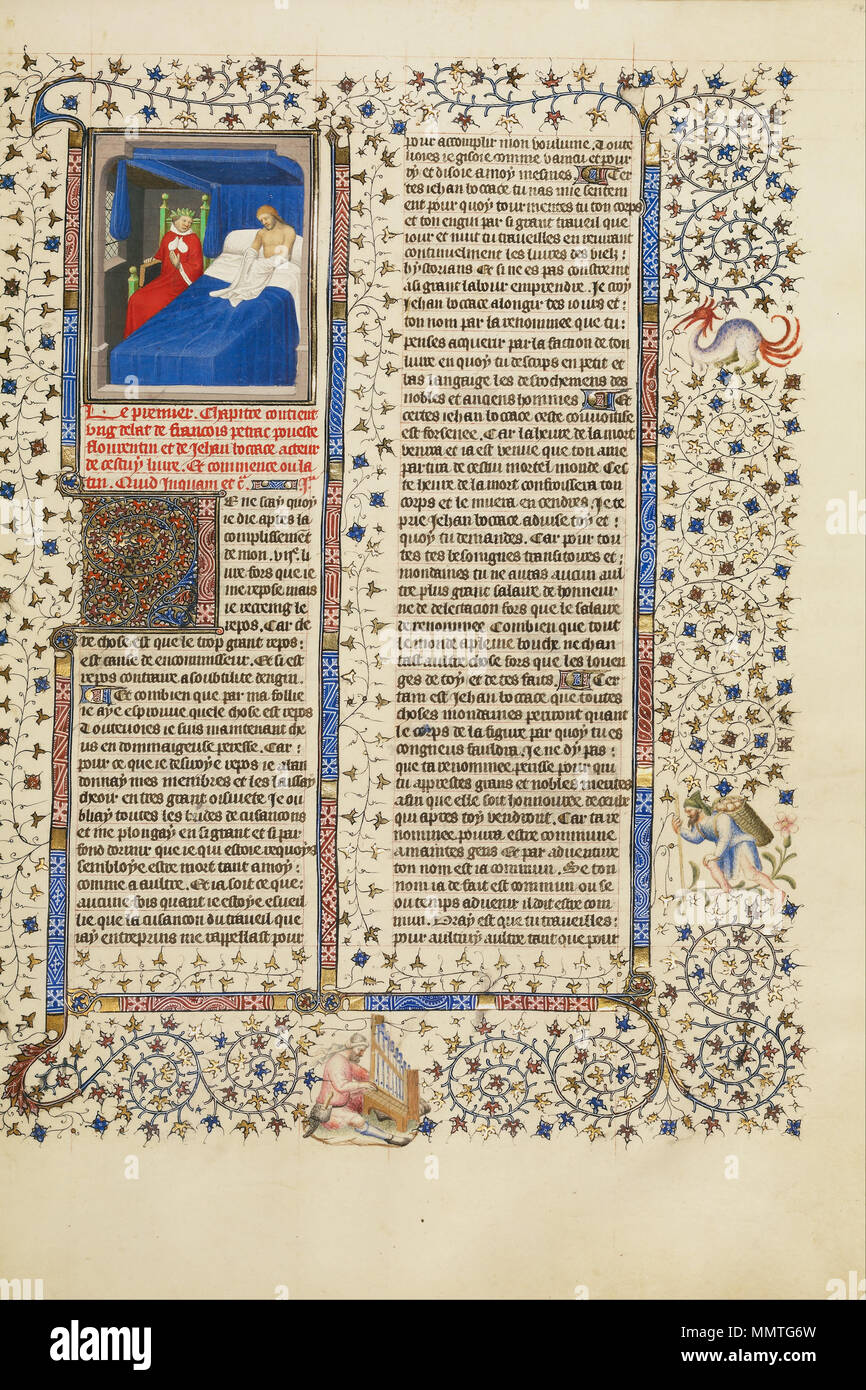 Le premier. Chapitre contient
ung debat de francois petrac poueste
flourentin et de Jehan bocace acteur
de cestuy livre. Et commence ou la
tin. Quid Inquam et c̃.
E ne scay quoy
ie die apres la
complissement
de mon. viıᵉ. li
ure fors que ie
me repose mais
ie restreing le
repos. Car cle
re chose est que le trop grant repos:
est cause de encommisseur. Et si est
repos contraire a soubtilite dengin.
Et combien que par ma follie
ie aye esprouve quele chose est repos
Toutevoies ie suis maintenant che
us en dommaigeuse peresse. Car:
pour ce que ie desvoye repos ie aban
donnay mes membres et les laissay
cheoir en tres grant oisivete Je ou
bliay toutes les brides de cusancons
et me plongay en si grant et si par
fond dormir que ie qui estoie requoys
sembloye estre mort tant a moy:
comme a aultre. Et ia soit ce que:
aucune fois quant ie estoye esveil
lie que la cusancon du travail que
iay entreprins me rappellast pour
pour accomplir mon voulume. Toute
voies ie gisoie comme vaincu et pour
ry et disoie a moy mesmes. Cer
tes iehan bocace tu nas mie sentem
ent pour quoy tourmentes tu ton corps
et ton engin par si grant traveil que
iour et nuit tu traveilles en reuirant
continuelment les livres des vielz:
hystorians Et si ne es pas constreint
a si grant labour emprendre. Je croy
Jehan bocace alongir tes iours et:
ton nom par la renommee que tu:
penses acquerir par la faction de ton
livre en quoy tu descrips en petit et
bas langaige les descochemens des
nobles et anciens hommes Et
certes iehan bocace ceste convoitise
est forsenee. Car la heure de la mort
venra et ia est venue que ton ame
partira de cestui mortel monde Ces
te heure de la mort confroissera ton
corps et le muera en cendres. Je te
prie Jehan bocace advise toy et:
quoy tu demandes. Car pour tou
tes tes besoignes transitoires et:
mondaines tu ne auras aucun aul
tre plus grant salaire de honneur
ne de delectacion fors que le salaire
de renommee Combien que tout
le monde a pleine bouche ne chan
tast aultre chose fors que les louen
ges de toy et de tes faits. Cer
tain est Jehan bocace que toutes
choses mondaines periront quant
le corps de la figure par quoy tu es
congneus fauldra. Je ne dy pas:
que ta renommee, pensse pour qui
tu apprestes grans et nobles merites
afin que elle soit honnouree de ceulx
qui apres toy vendront. Car ta re
nommee pourra estre commune
a maintes gens Et par adventure
ton nom est ia commun. Se ton
nom ia de fait est commun ou se
ou temps advenir il doit estre com
mun. Vray est que tu travailles:
pour aultruy aultre tant que pour
alamy stock photo
Image ID: MMTG6W
www.alamy.com